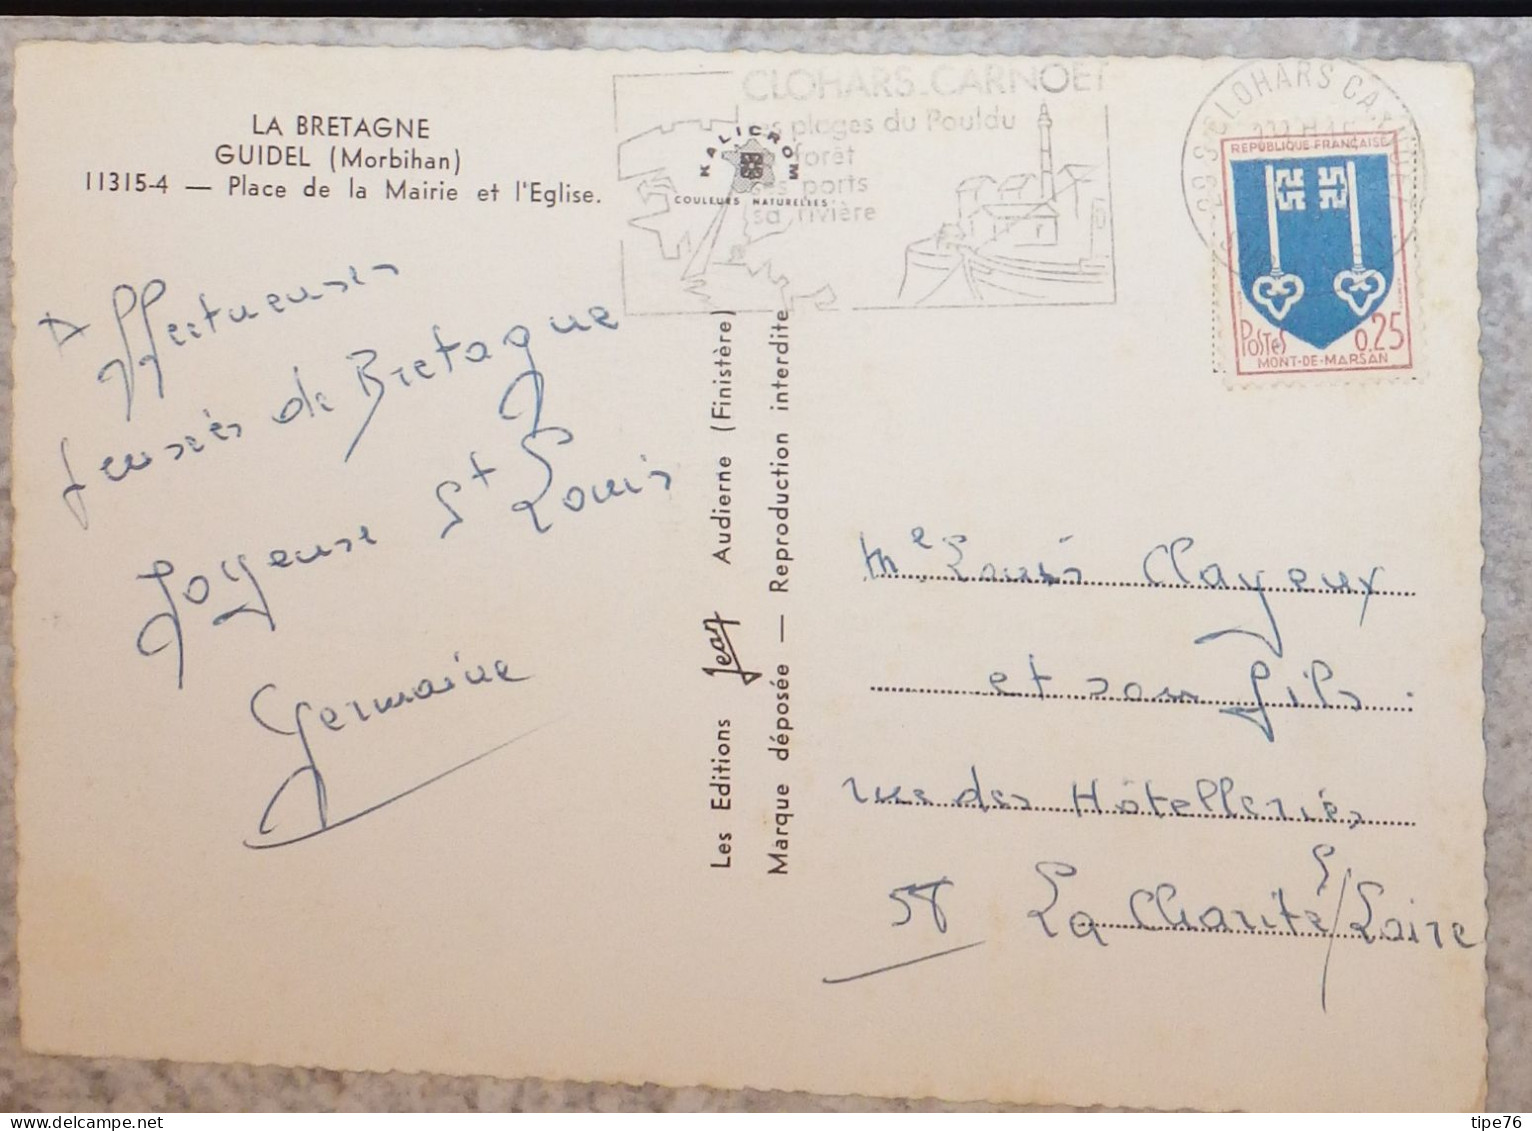 LA BRETAGNE
GUIDEL (Morbihan)
11315-4 — Place de la Mairie et l'Eglise.
CLOHARS-CARNOET
ses plages du Pouldu
sa forêt
ses ports
sa rivière
KALICROM
COULEURS NATURELLES
29 S CLOHARS CARNOET
REPUBLIQUE FRANÇAISE
POSTES 0,25
MONT-DE-MARSAN
Affectueuses
pensées de Bretagne
Joyeuse St Louis
Germaine
Les Editions Jean Audierne (Finistère)
Marque déposée — Reproduction interdite
Me Louis Clayeux
et son fils
rue des Hôtelleries
58 La Charité s/Loire
delcampe.net
tipe76